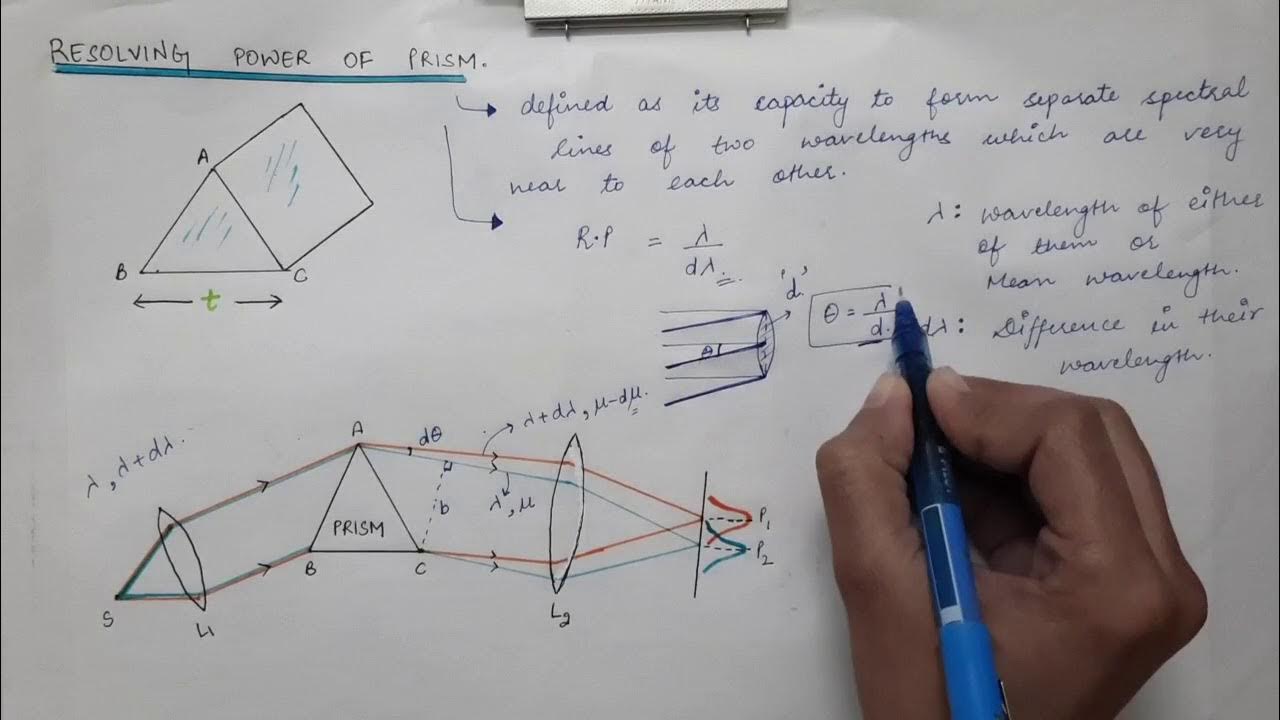 RESOLVING POWER OF PRISM.
defined as its capacity to form separate spectral
lines of two wavelengths which are very
near to each other.
R.P = λ/dλ
λ: wavelength of either
of them or
Mean wavelength.
dλ: Difference in their
wavelength.
A
B
C
t
'd'
θ
θ = λ/d.
λ, λ+dλ.
S
L1
A
B
C
PRISM
dθ
λ+dλ, μ-dμ.
b
λ, μ
L2
P1
P2